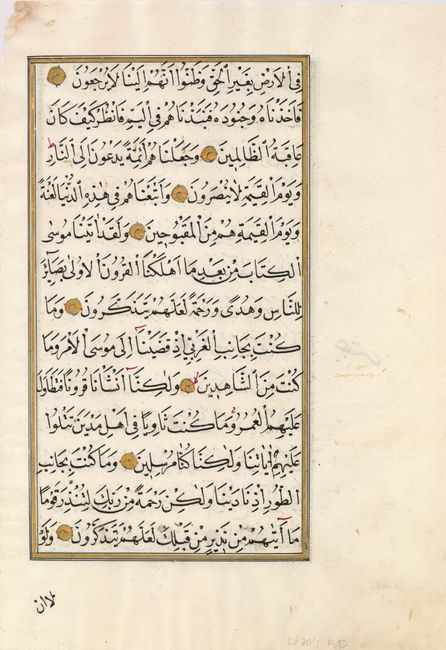 فِي الْاَرْضِ بِغَيْرِ الْحَقِّ وَظَنُّوا اَنَّهُمْ اِلَيْنَا لَا يُرْجَعُونَ
فَاَخَذْنَاهُ وَجُنُودَهُ فَنَبَذْنَاهُمْ فِي الْيَمِّ فَانْظُرْ كَيْفَ كَانَ
عَاقِبَةُ الظَّالِمِينَ وَجَعَلْنَاهُمْ اَئِمَّةً يَدْعُونَ اِلَى النَّارِ
وَيَوْمَ الْقِيٰمَةِ لَا يُنْصَرُونَ وَاَتْبَعْنَاهُمْ فِي هٰذِهِ الدُّنْيَا لَعْنَةً
وَيَوْمَ الْقِيٰمَةِ هُمْ مِنَ الْمَقْبُوحِينَ وَلَقَدْ اٰتَيْنَا مُوسَى
الْكِتَابَ مِنْ بَعْدِ مَا اَهْلَكْنَا الْقُرُونَ الْاُولٰى بَصَائِرَ
لِلنَّاسِ وَهُدًى وَرَحْمَةً لَعَلَّهُمْ يَتَذَكَّرُونَ وَمَا
كُنْتَ بِجَانِبِ الْغَرْبِيِّ اِذْ قَضَيْنَا اِلٰى مُوسَى الْاَمْرَ وَمَا
كُنْتَ مِنَ الشَّاهِدِينَ وَلٰكِنَّا اَنْشَاْنَا قُرُونًا فَتَطَاوَلَ
عَلَيْهِمُ الْعُمُرُ وَمَا كُنْتَ ثَاوِيًا فِي اَهْلِ مَدْيَنَ تَتْلُوا
عَلَيْهِمْ اٰيَاتِنَا وَلٰكِنَّا كُنَّا مُرْسِلِينَ وَمَا كُنْتَ بِجَانِبِ
الطُّورِ اِذْ نَادَيْنَا وَلٰكِنْ رَحْمَةً مِنْ رَبِّكَ لِتُنْذِرَ قَوْمًا
مَا اَتٰيهُمْ مِنْ نَذِيرٍ مِنْ قَبْلِكَ لَعَلَّهُمْ يَتَذَكَّرُونَ وَلَوْ
لا ان